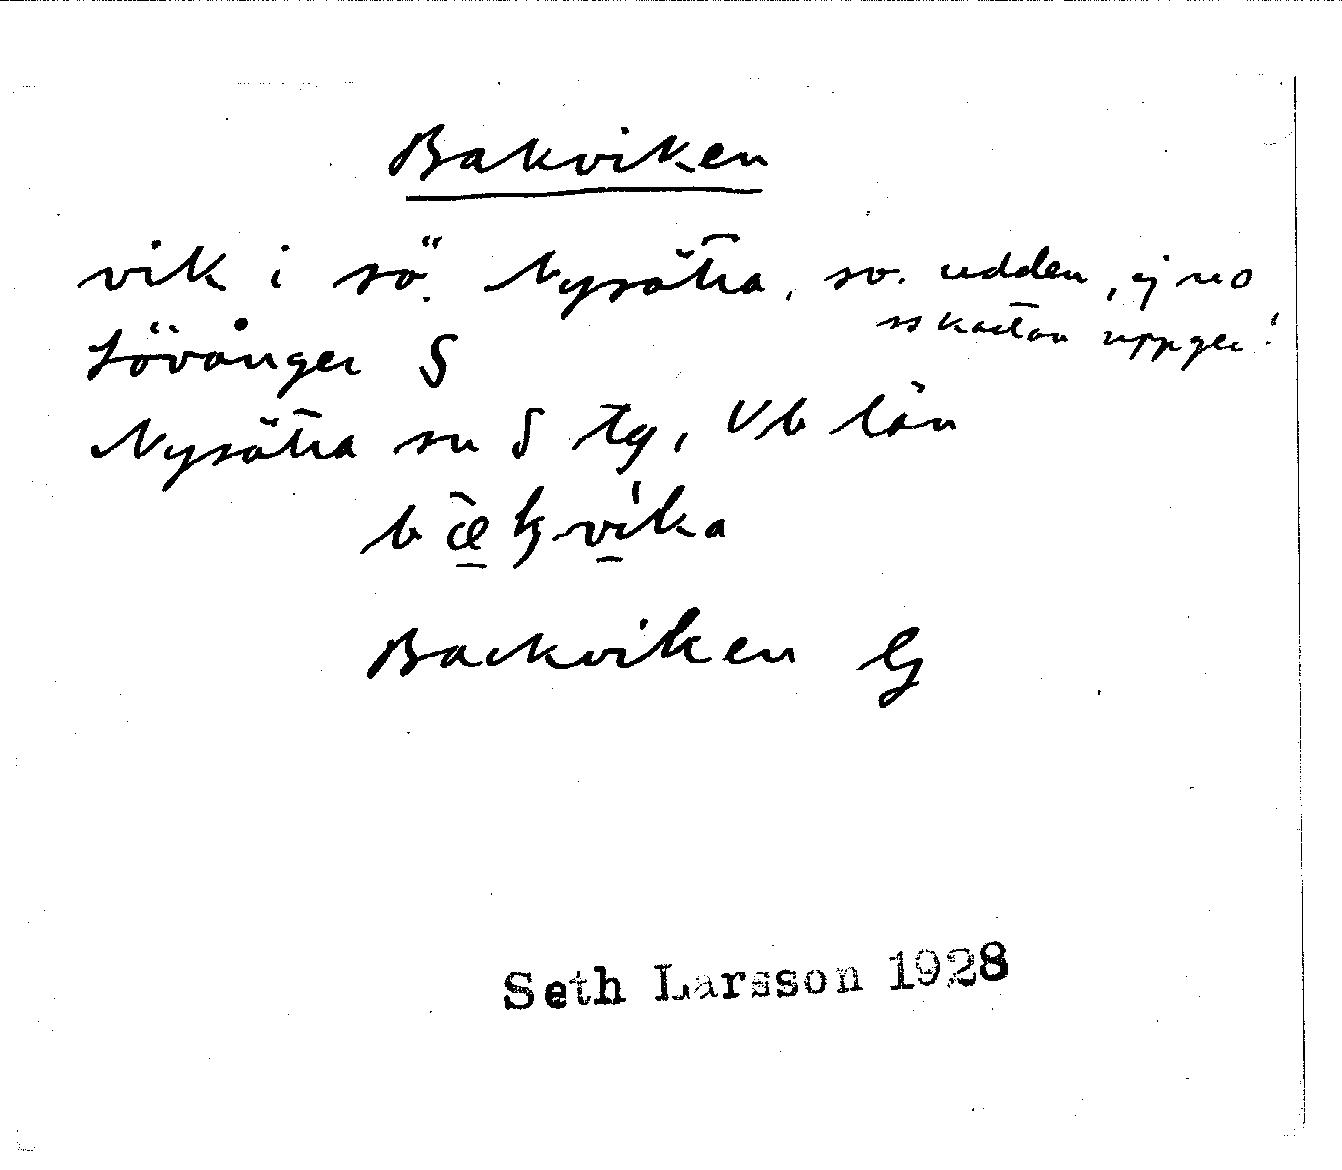 Bakviken
vik i sö. Nysätra, sv. udden, ej no
ss kartan uppger!
Lövånger S
Nysätra sn S tg, Vb län
Backviken G
Seth Larsson 1928